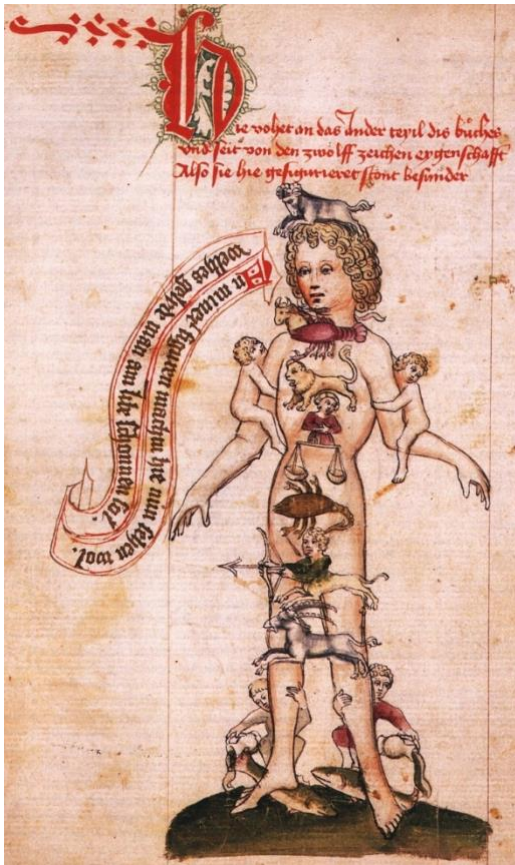 Hie vohet an das ander teyil dis bůches
vnd seit von den zwölff zeichen eygenschafft
Also sie hie gesiguriertet stont besunder
In miner figuren machtu hie nün sehen wol
welhes göste man am libe schonnen sol